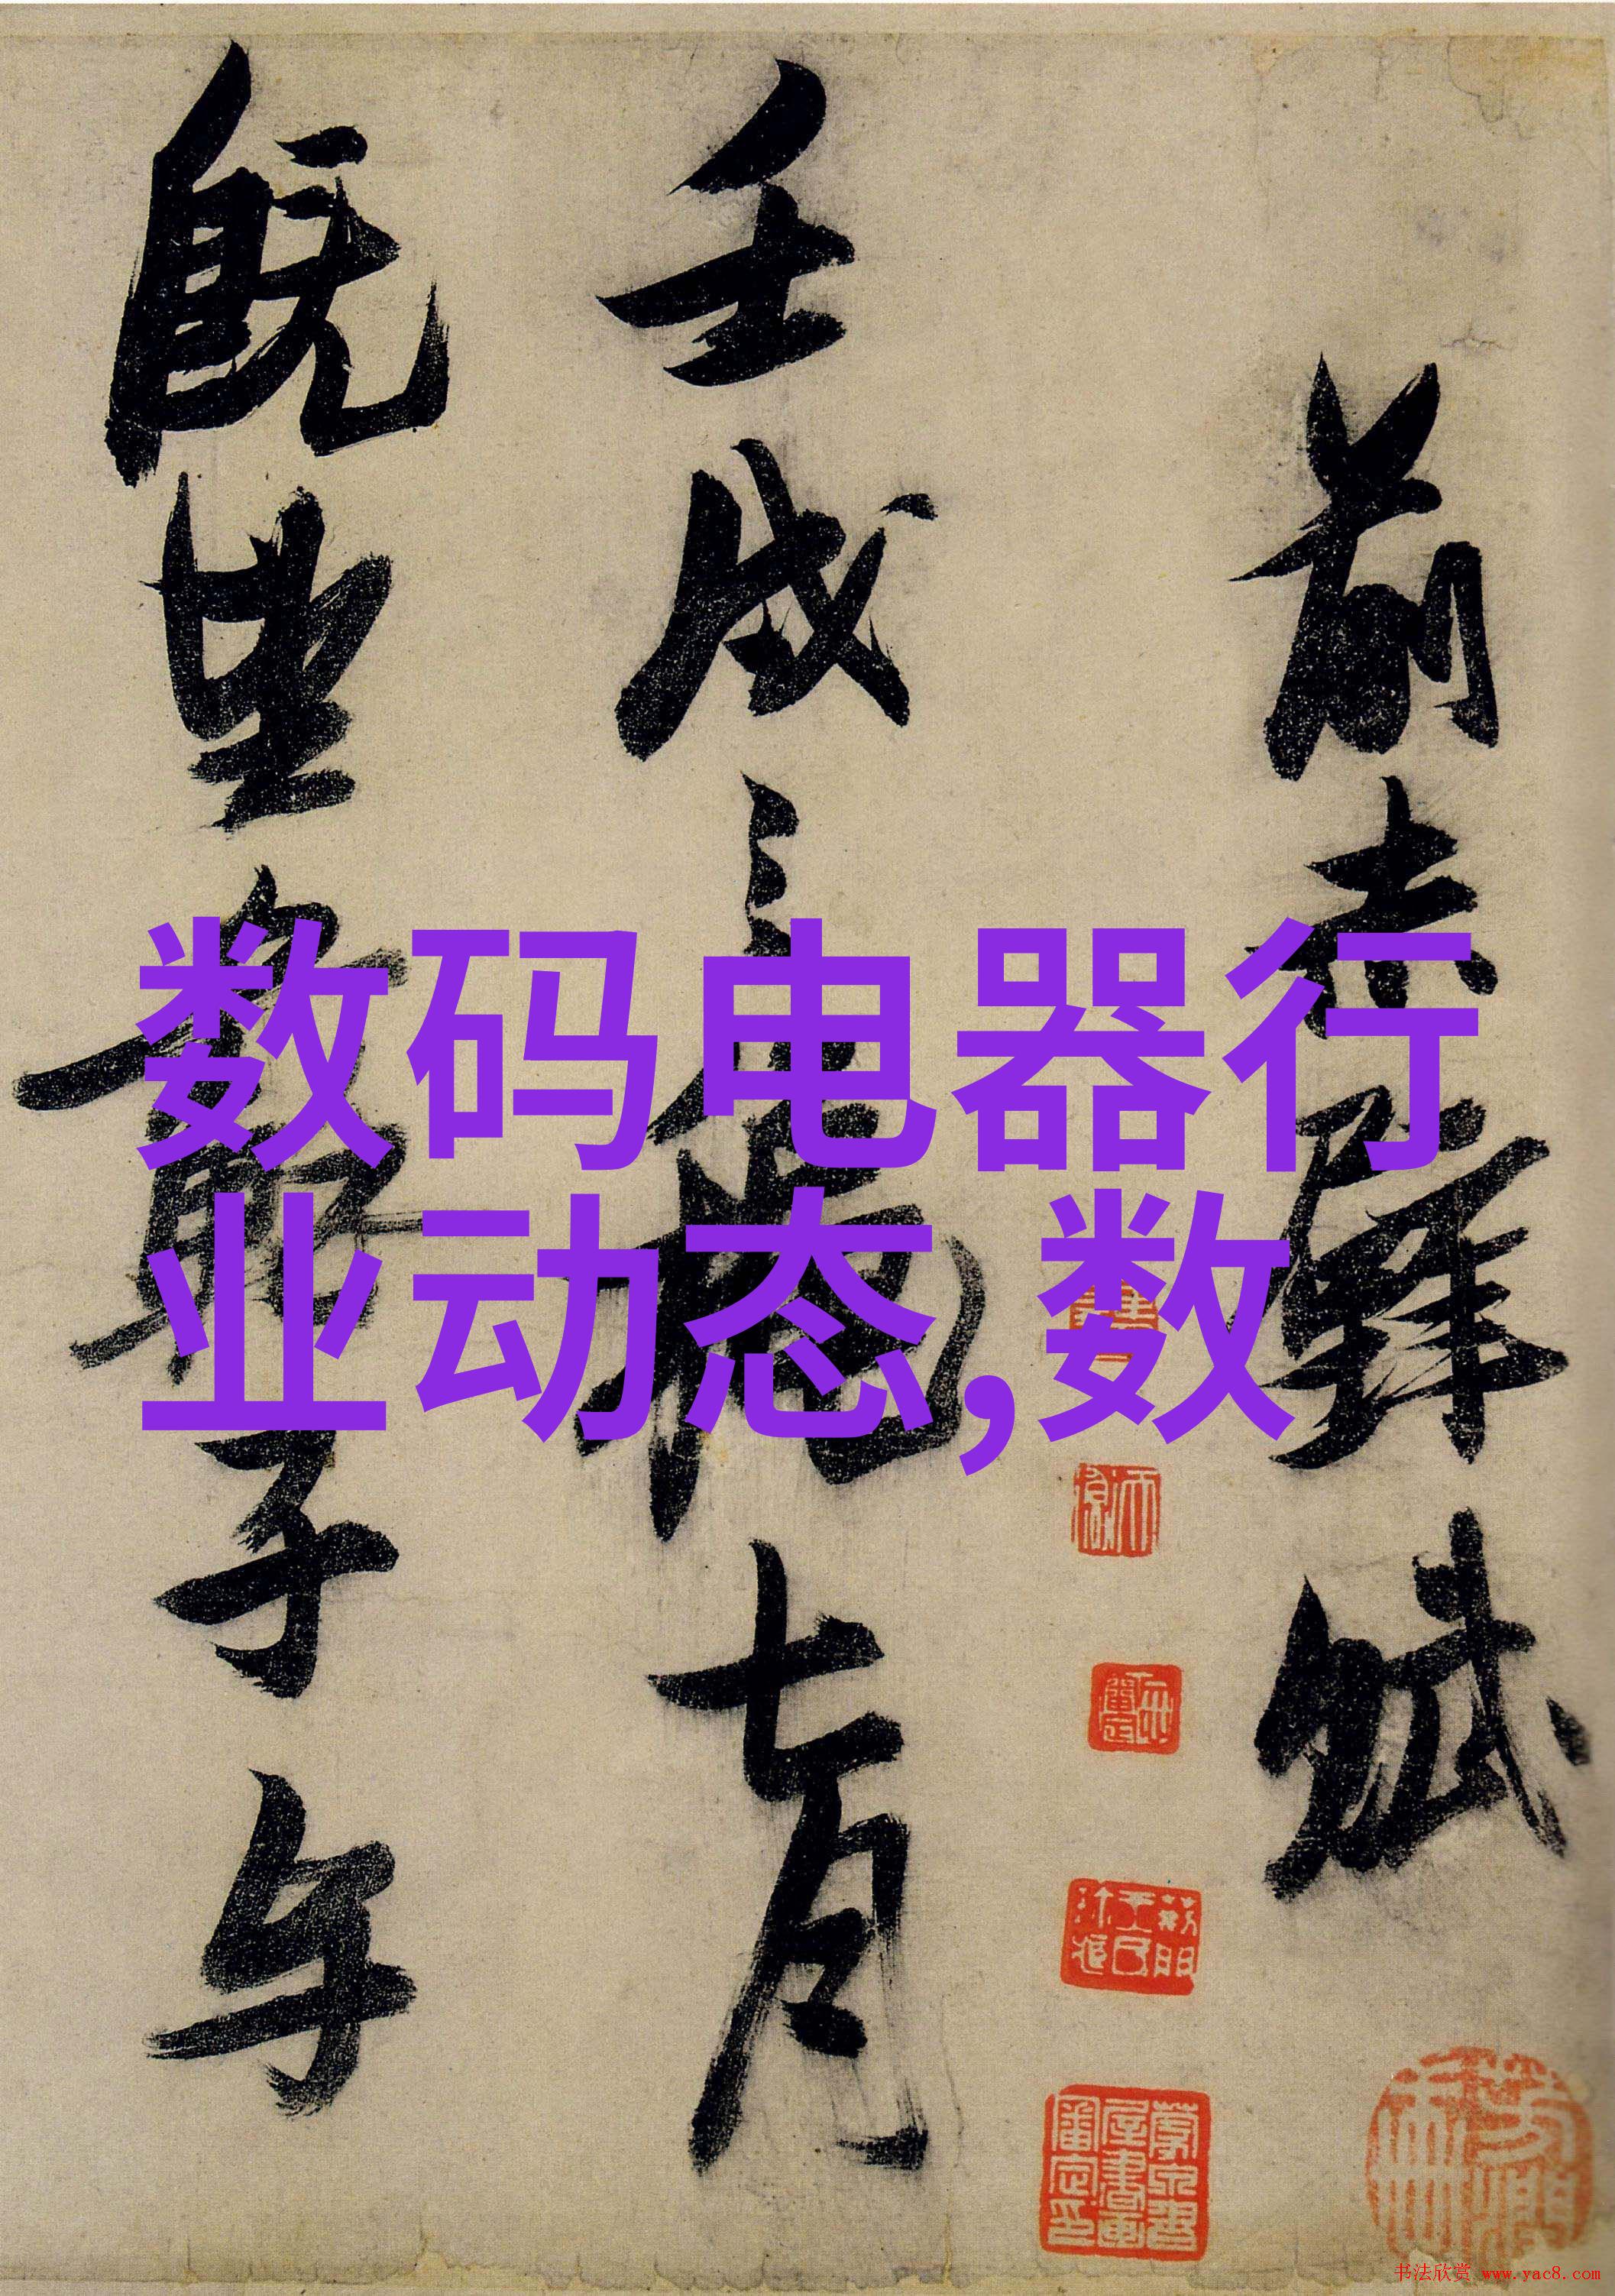 前赤壁賦
壬戌之秋七月
既望蘇子与
数码电器行
业动态,数
书法欣赏 www.yac8.com